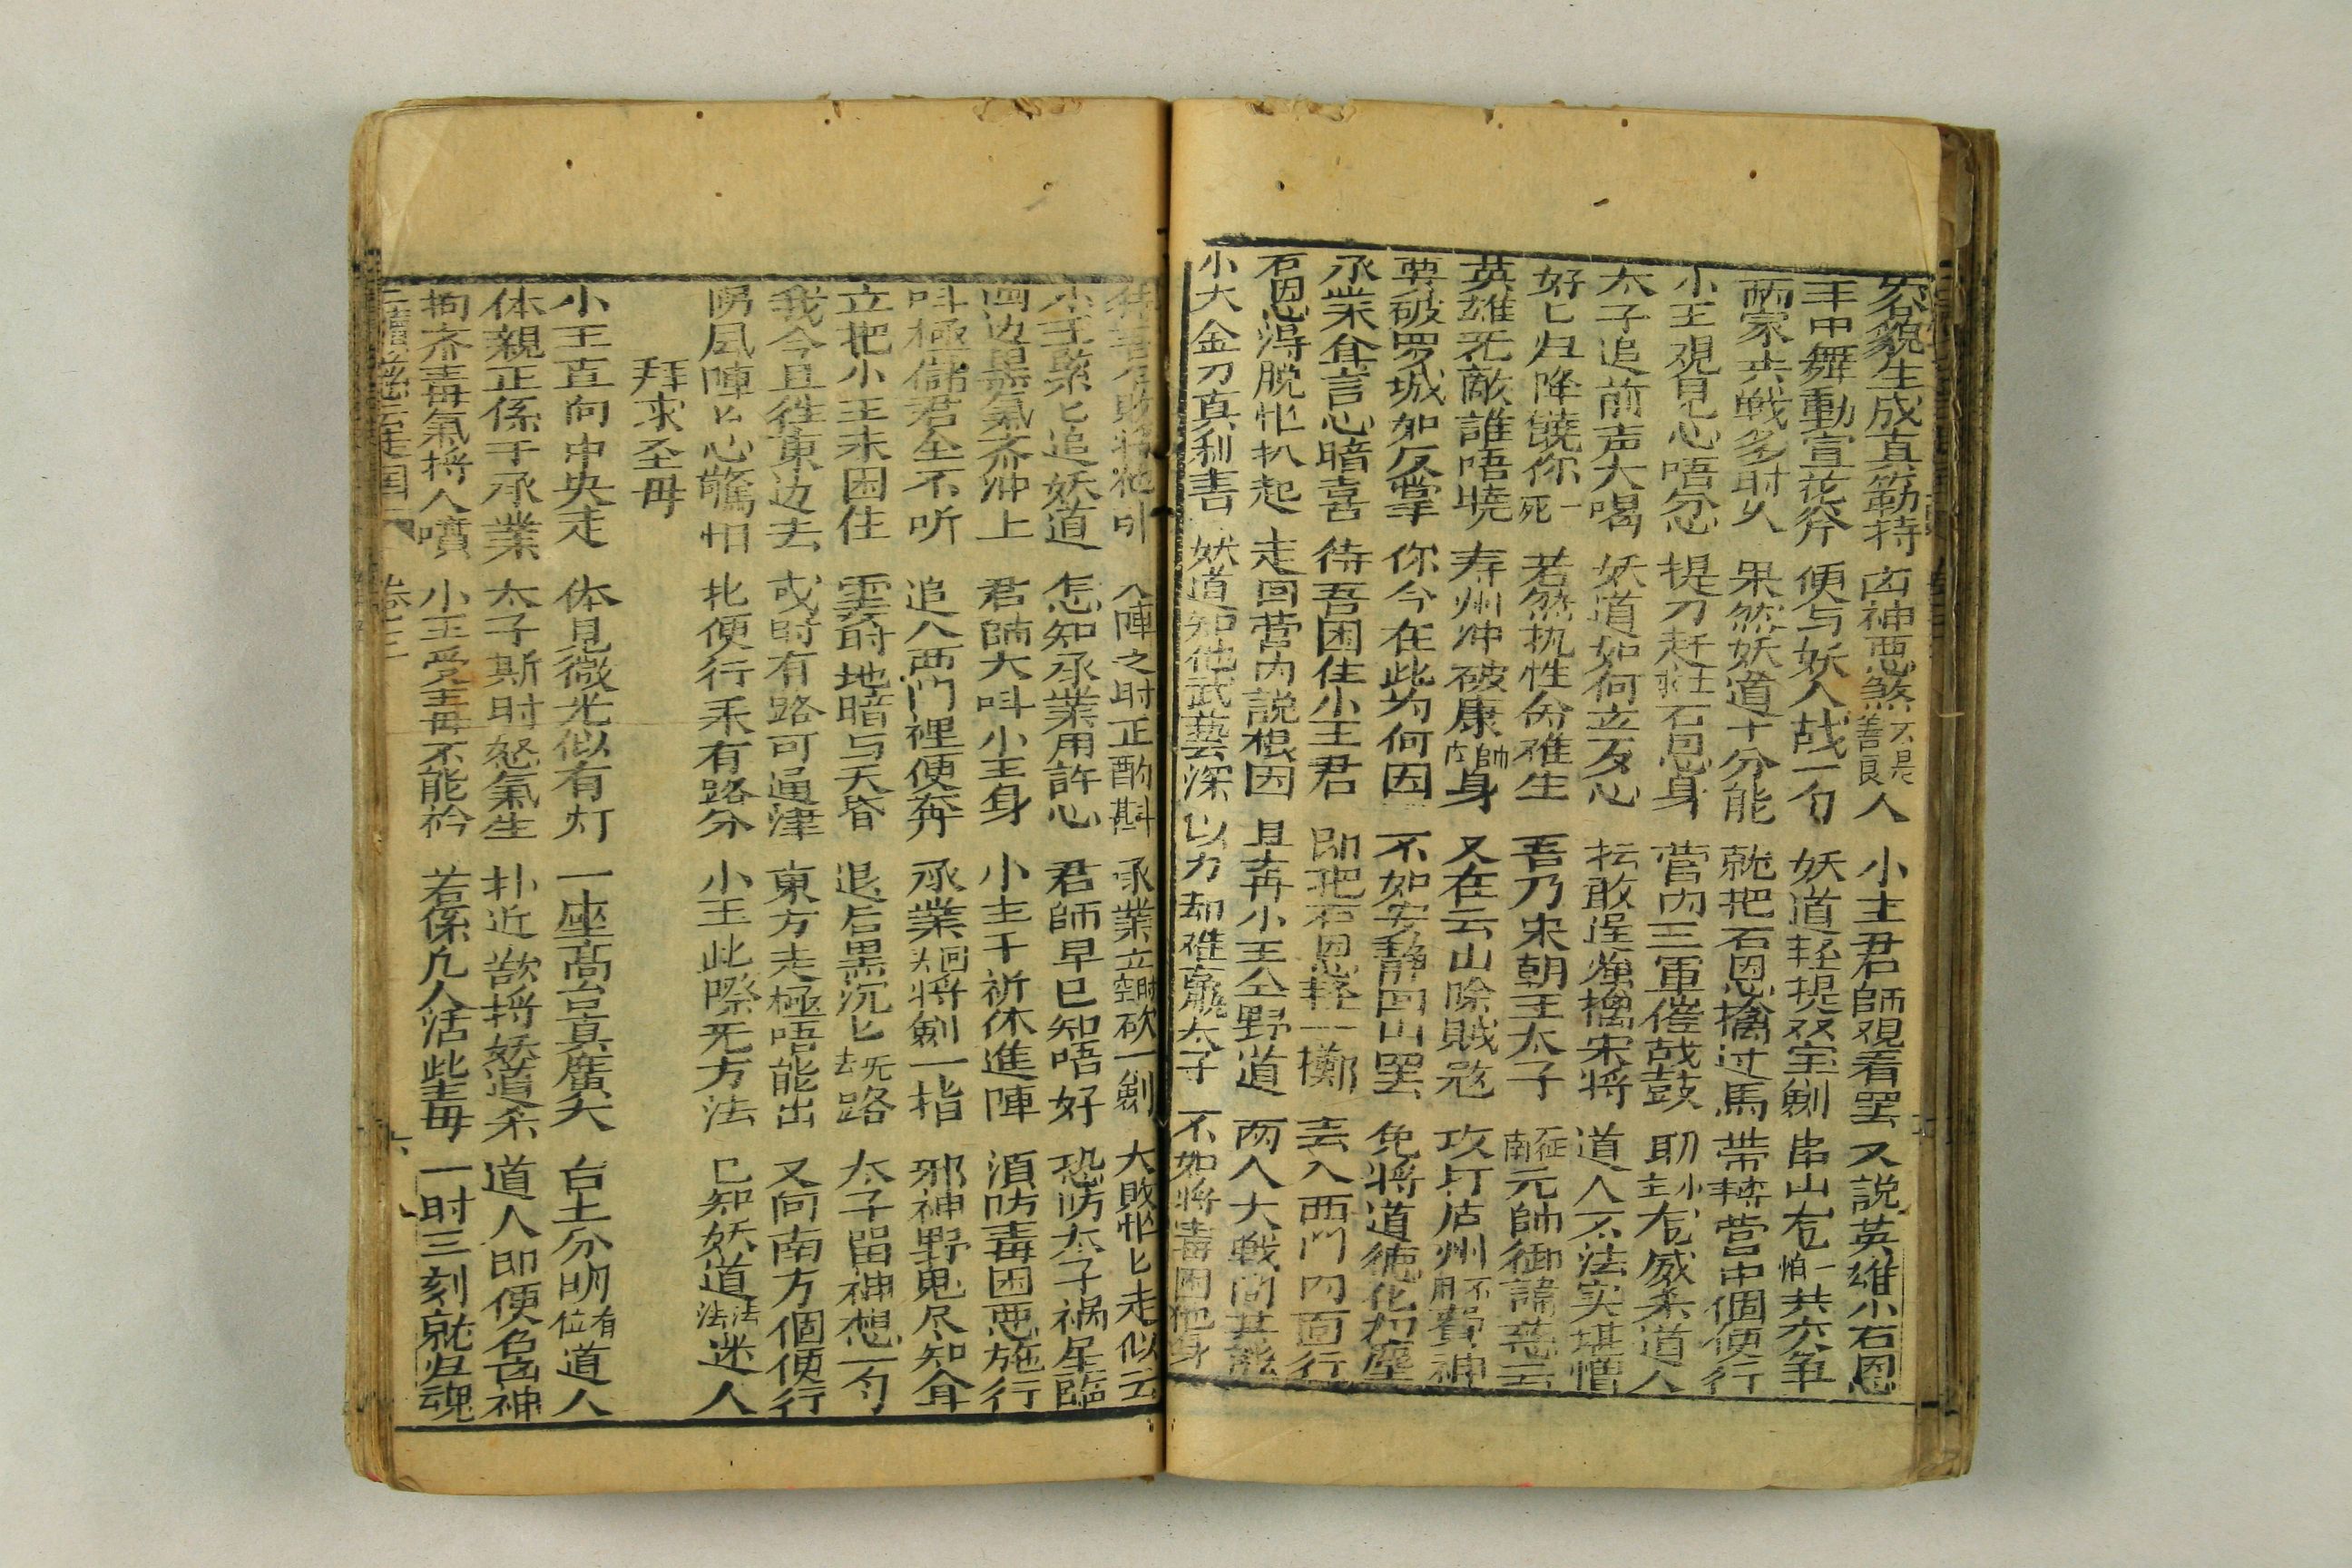 容貌生成真簕特 凶神惡煞不是善良人 小主君師观看罢 又説英雄小石恩
手中舞動宣花斧 便与妖人战一勻 妖道轻提双宝劍 串山右怕一共六争
两家共戦多时久 果然妖道十分能 就把石恩擒过馬 带轉营中個便行
小王观見心唔忿 提刀赶往石恩身 营内三軍催战鼓 小主有威柔道人
太子追前声大喝 妖道如何立歹心 抎敢逞强擒宋将 道人不法实堪憎
好匕归降饒你一死 若然执性命难生 吾乃宋朝王太子 征南元帥御諱慈云
英雄无敵誰唔曉 寿州冲破康帥身 又在云山除賊冦 攻打卢州不用費神
要破罗城如反掌 你今在此为何因 不如安静回山罢 免将道德化扫塵
承業耸言心暗喜 待吾困住小王君 即把石恩輕一擲 丢入西門内面行
石恩得脱忙扒起 走回营内説根因 且弄小王仝野道 两人大戦間其能
小大金刀真利害 妖道知他武藝深 以力却难贏太子 不如将毒困他身
入陣之时正酌斟 承業立时空砍一劍 大敗忙匕走似云
小主緊匕追妖道 怎知承業用詐心 君師早已知唔好 恐防太子禍星臨
四边黑氣齐冲上 君師大叫小主身 小主千祈休進陣 須防毒困惡施行
叫極儲君全不听 追入西門裡便奔 承業回头将劍一指 邪神野鬼尽知耸
立把小王来困住 霎时地暗与天昏 退后黑沉匕无去路 太子留神想一勻
我今且往東边去 或时有路可通津 東方走極唔能出 又向南方個便行
陰風陣匕心驚怕 北便行来有路分 小王此際无方法 已知妖道法法迷人
拜求圣母
小王直向中央走 体見微光似有灯 一座高台真廣大 台上分明有位道人
体親正係于承業 太子斯时怒氣生 扑近欲将妖道杀 道人即便召凶神
拘齐毒氣将人噴 小王受毒不能衿 若係凡人沾些毒 一时三刻就归魂